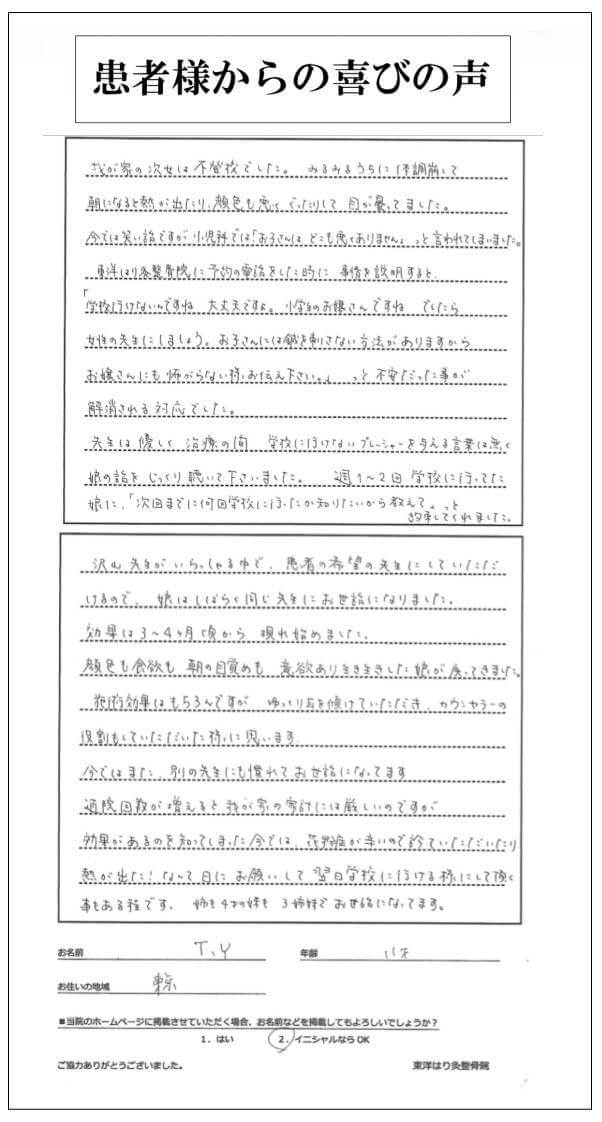 患者様からの喜びの声
我が家の次女は不登校でした。 みるみるうちに体調崩して
朝になると熱が出たり、顔色も悪く ぐったりして 目が曇ってました。
今では笑い話ですが小児科では「お子さんは どこも悪くありません」 っと言われてしまいました。
東洋はり灸整骨院に予約の電話をした時に 事情を説明すると、
「学校行けないんですね 大丈夫ですよ。小学生のお嬢さんですね でしたら
女性の先生にしましょう。お子さんには鍼を刺さない方法がありますから
お嬢さんにも怖がらない様、お伝え下さい。」 っと 不安だった事が
解消される対応でした。
先生は優しく 治療の間 学校に行けないプレッシャーを与える言葉は無く
娘の話を じっくり聴いて下さいました。 週1〜2回 学校に行ってた
娘に、「次回までに何回学校に行ったか知りたいから教えて」っと
約束してくれました。
沢山先生がいらっしゃる中で、患者の希望の先生にしていただ
けるので、娘はしばらく同じ先生にお世話になりました。
効果は3〜4ヶ月頃から 現れ始めました。
顔色も食欲も 朝の目覚めも 意欲あり生き生きした娘が戻ってきました。
施術効果はもちろんですが ゆっくり耳を傾けていただき、カウンセラーの
役割もしていただいた様に思います。
今ではまた 別の先生にも慣れてお世話になってます
通院回数が増えると我が家の家計には厳しいのですが
効果があるのを知ってしまった今では、花粉症が辛いので診ていただいたり
熱が出た!なんて日にお願いして 翌日学校に行ける様にして頂く
事もある程です。 姉も4才の妹も 3姉妹でお世話になってます。
お名前 T.Y 年齢 11才
お住いの地域 東京
■当院のホームページに掲載させていただく場合、お名前などを掲載してもよろしいでしょうか？
1．はい 2．イニシャルなら OK
ご協力ありがとうございました。 東洋はり灸整骨院